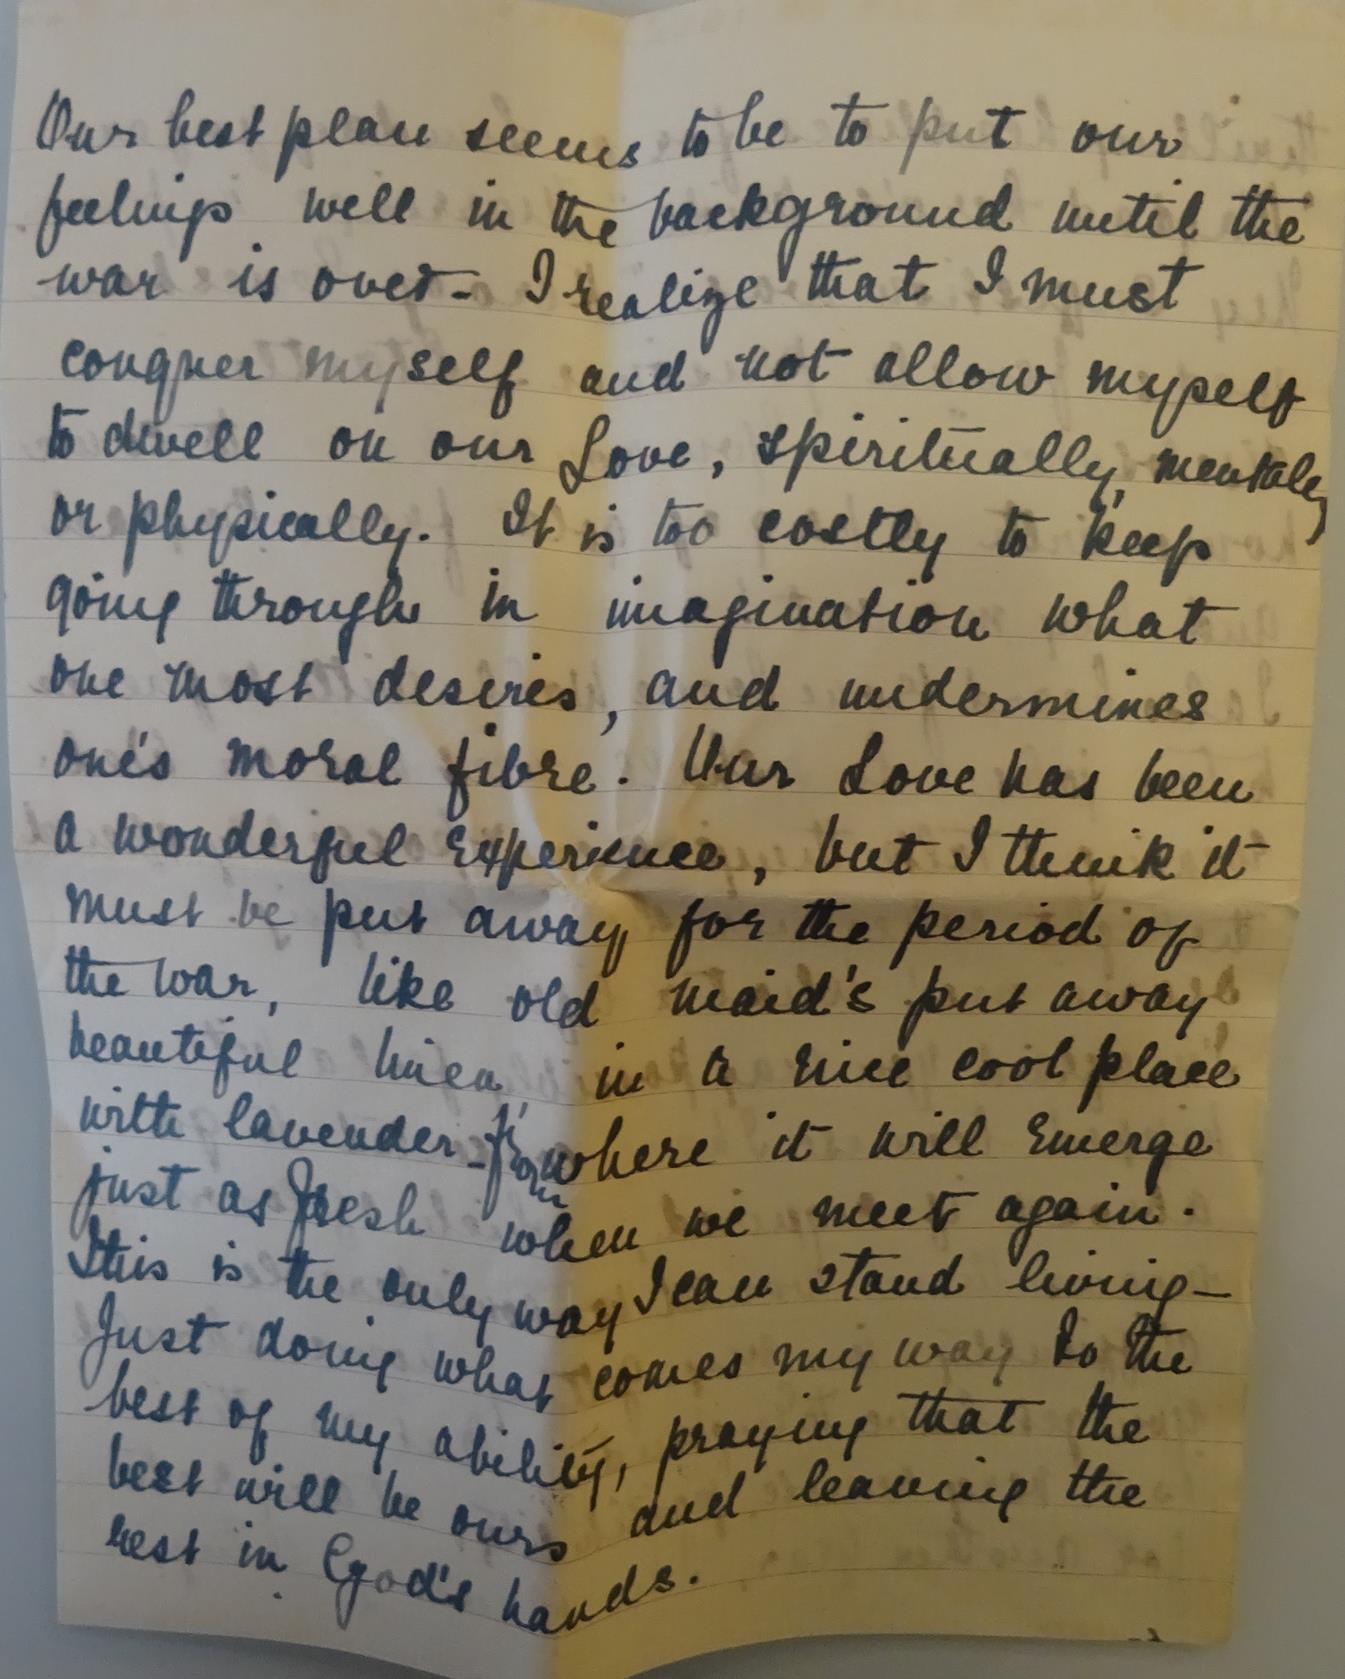 Our best plan seems to be to put our
feelings well in the background until the
war is over - I realize that I must
conquer myself and not allow myself
to dwell on our Love, spiritually, mentally
or physically. It is too costly to keep
going through in imagination what
one most desires, and undermines
one's moral fibre. Our Love has been
a wonderful experience, but I think it
must be put away for the period of
the war, like old maid's put away
beautiful linen, in a nice cool place
with lavender - from where it will emerge
just as fresh when we meet again.
This is the only way I can stand living -
Just doing what comes my way to the
best of my ability, praying that the
best will be ours and leaving the
rest in God's hands.